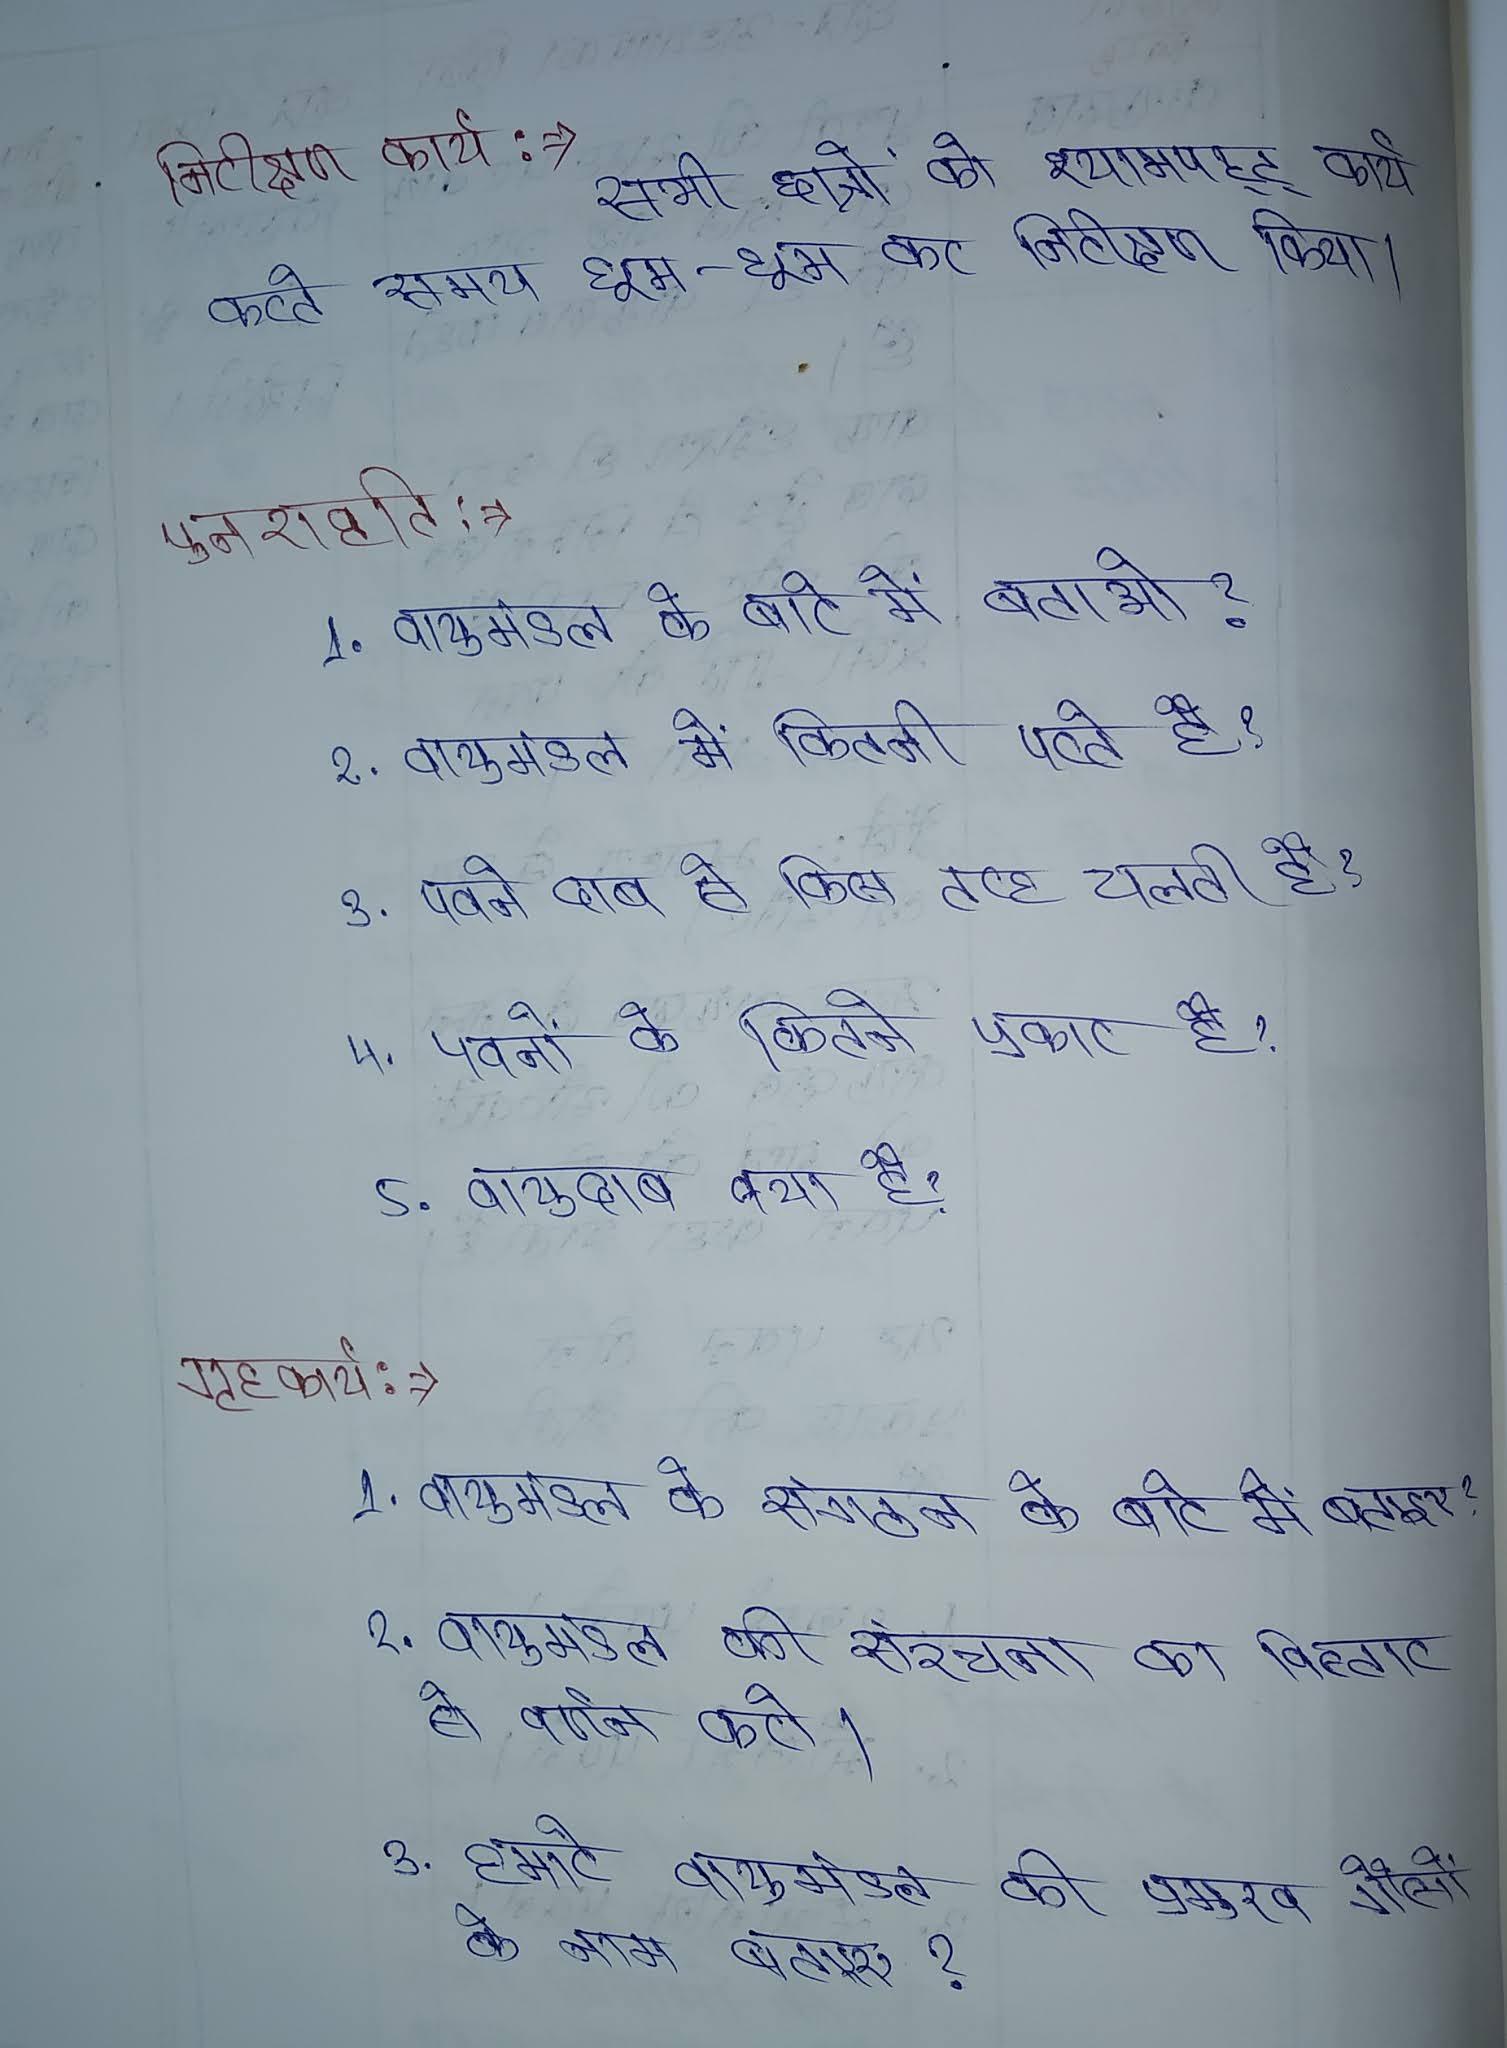 निरीक्षण कार्य :⇒
सभी छात्रों को श्यामपट्ट कार्य
करते समय घूम-घूम कर निरीक्षण किया।
पुनरावृति :⇒
1. वायुमंडल के बारे में बताओ?
2. वायुमंडल में कितनी परते है?
3. पवने दाब से किस तरह चलती है?
4. पवनों के कितने प्रकार है?
5. वायुदाब क्या है?
गृहकार्य :⇒
1. वायुमंडल के संगठन के बारे में बताइए?
2. वायुमंडल की संरचना का विस्तार
से वर्णन करो।
3. हमारे वायुमंडल की प्रमुख गैसों
के नाम बताइए?